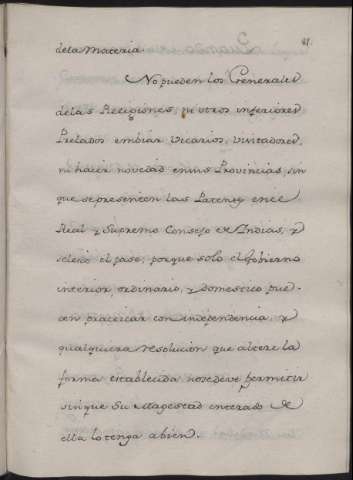 41.
dela Materia.
No pueden los Generales
delas Religiones, ni otros inferiores
Prelados embiar Vicarios, Visitadores,
ni hacer novedad en sus Provincias, sin
que se presenten las Patentes en el
Real y Supremo Consejo de Indias, y
seles dé el pase, porque solo el Gobierno
interior, ordinario, y domestico pue-
den practicar con independencia, y
qualquiera resolucion que altere la
forma establecida nosedeve permitir
sinque Su Magestad enterado de
ella lo tenga abien.